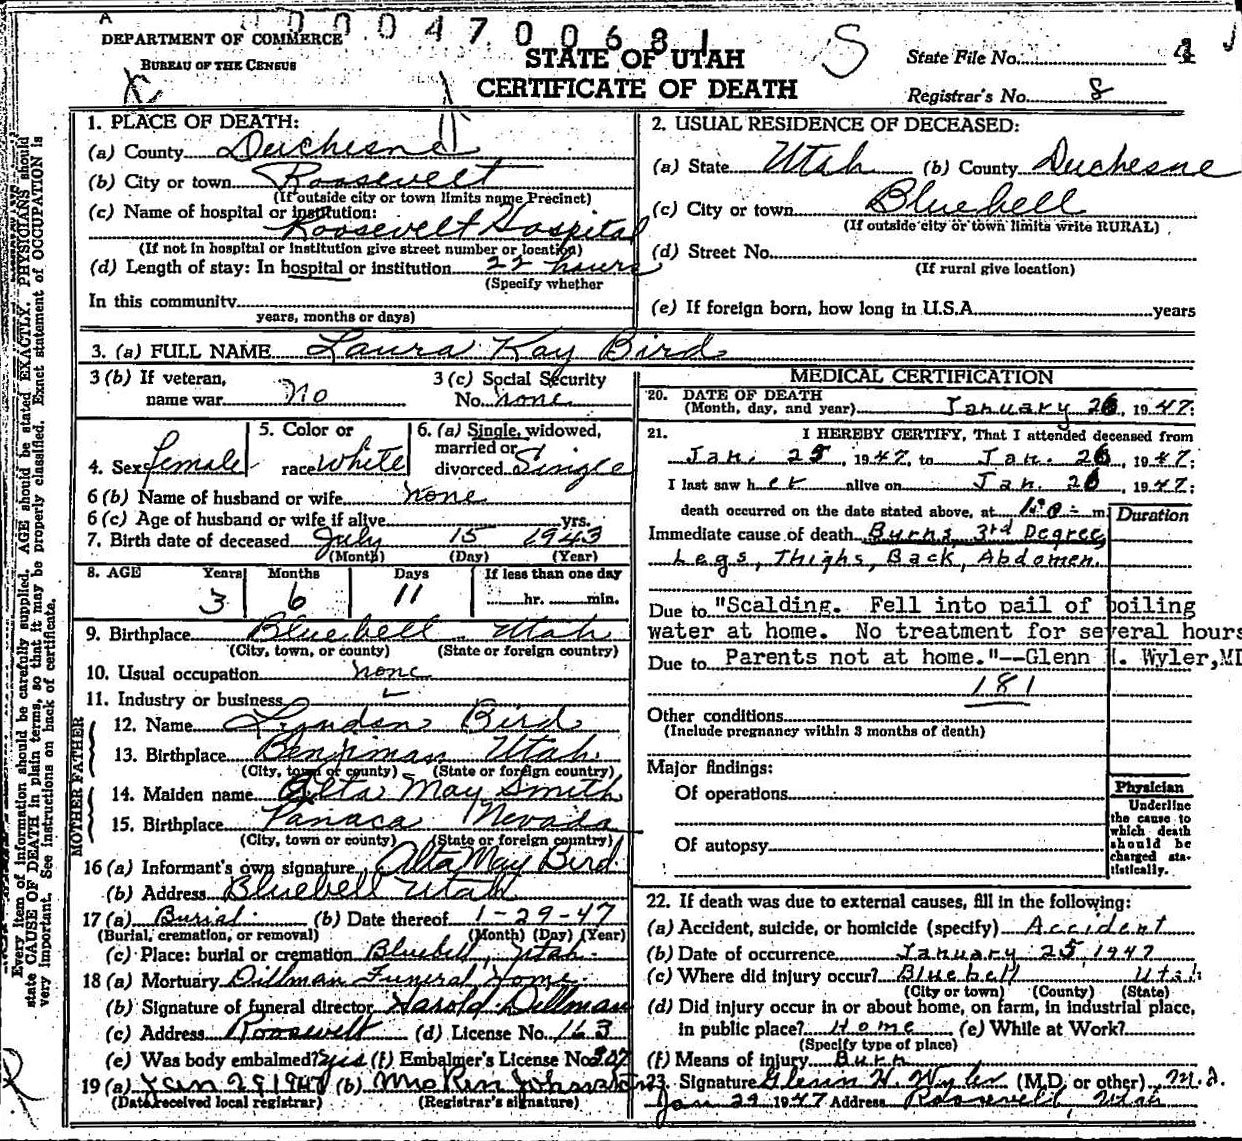 A
000470681
DEPARTMENT OF COMMERCE
BUREAU OF THE CENSUS
STATE OF UTAH
CERTIFICATE OF DEATH
S
State File No. 4
Registrar's No. 8
1. PLACE OF DEATH:
(a) County Duchesne
(b) City or town Roosevelt
(If outside city or town limits name Precinct)
(c) Name of hospital or institution:
Roosevelt Hospital
(If not in hospital or institution give street number or location)
(d) Length of stay: In hospital or institution 22 hours
(Specify whether
In this community
years, months or days)
2. USUAL RESIDENCE OF DECEASED:
(a) State Utah (b) County Duchesne
(c) City or town Bluebell
(If outside city or town limits write RURAL)
(d) Street No.
(If rural give location)
(e) If foreign born, how long in U.S.A. years
3. (a) FULL NAME Laura Kay Bird
3 (b) If veteran, name war No
3 (c) Social Security No. none
4. Sex female
5. Color or race white
6. (a) Single, widowed, married or divorced Single
6 (b) Name of husband or wife none
6 (c) Age of husband or wife if alive yrs.
7. Birth date of deceased July 15 1943
(Month) (Day) (Year)
8. AGE Years Months Days If less than one day
3 6 11 hr. min.
9. Birthplace Bluebell Utah
(City, town, or county) (State or foreign country)
10. Usual occupation none
11. Industry or business
FATHER
12. Name Lyndon Bird
13. Birthplace Benjiman Utah
(City, town or county) (State or foreign country)
MOTHER
14. Maiden name Alta May Smith
15. Birthplace Panaca Nevada
(City, town or county) (State or foreign country)
16 (a) Informant's own signature Alta May Bird
(b) Address Bluebell Utah
17 (a) Burial (b) Date thereof 1-29-47
(Burial, cremation, or removal) (Month) (Day) (Year)
(c) Place: burial or cremation Bluebell, Utah.
18 (a) Mortuary Dillman Funeral Home
(b) Signature of funeral director Harold Dillman
(c) Address Roosevelt (d) License No. 163
(e) Was body embalmed? yes (f) Embalmer's License No. 207
19 (a) Jan 29 1947 (b) Mrs Ken Johnston
(Date received local registrar) (Registrar's signature)
MEDICAL CERTIFICATION
20. DATE OF DEATH
(Month, day, and year) January 26, 1947.
21. I HEREBY CERTIFY, That I attended deceased from
Jan. 25, 1947, to Jan. 26, 1947;
I last saw her alive on Jan. 26, 1947;
death occurred on the date stated above, at m.
Duration
Immediate cause of death Burns, 3rd Degree,
Legs, Thighs, Back, Abdomen.
Due to "Scalding. Fell into pail of boiling
water at home. No treatment for several hours
Due to Parents not at home."--Glenn H. Wyler,MD
181
Other conditions
(Include pregnancy within 3 months of death)
Major findings:
Of operations
Of autopsy
Physician
Underline the cause to which death should be charged statistically.
22. If death was due to external causes, fill in the following:
(a) Accident, suicide, or homicide (specify) Accident
(b) Date of occurrence January 25, 1947
(c) Where did injury occur? Bluebell Utah
(City or town) (County) (State)
(d) Did injury occur in or about home, on farm, in industrial place,
in public place? Home (e) While at Work?
(Specify type of place)
(f) Means of injury Burn
23. Signature Glenn H. Wyler (M.D. or other) M.D.
Jan 29 1947 Address Roosevelt, Utah
Every item of information should be carefully supplied. AGE should be stated EXACTLY. PHYSICIANS should
state CAUSE OF DEATH in plain terms, so that it may be properly classified. Exact statement of OCCUPATION is
very important. See instructions on back of certificate.